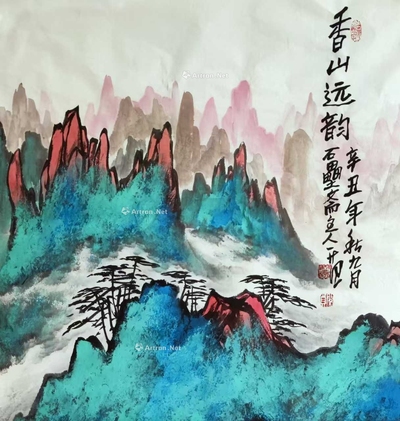 香山远韵
辛丑年秋九月
石壘斋主人一开
Artron.Net
Artron.Net
Artron.Net
Artron.Net